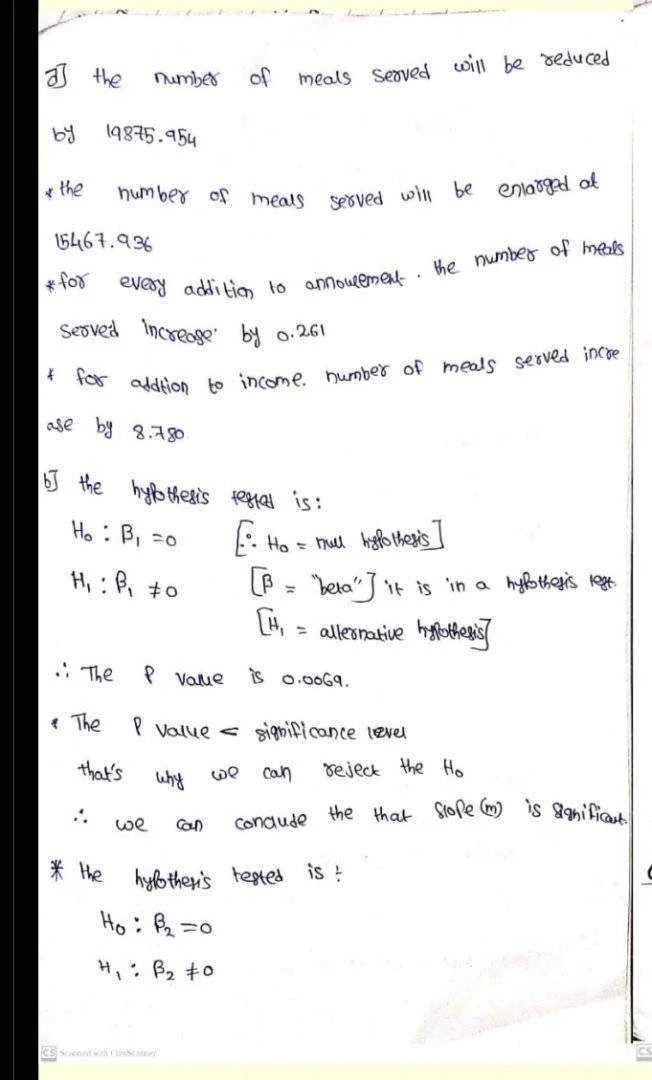 a] the number of meals served will be reduced
by 19875.954
* the number of meals served will be enlarged at
15467.936
* for every addition to annoucement. the number of meals
served increase by 0.261
* for addtion to income. number of meals served incre
ase by 8.780
b] the hypothesis tested is:
H₀ : β₁ = 0 [∵ H₀ = null hypothesis]
H₁ : β₁ ≠ 0 [β = "beta"] it is in a hypothesis test
[H₁ = alternative hypothesis]
∴ The P value is 0.0069.
* The P value < significance level
that's why we can reject the H₀
∴ we can conclude the that slope (m) is significant.
* the hypothesis tested is :
H₀ : β₂ = 0
H₁ : β₂ ≠ 0
CS Scanned with CamScanner
CS